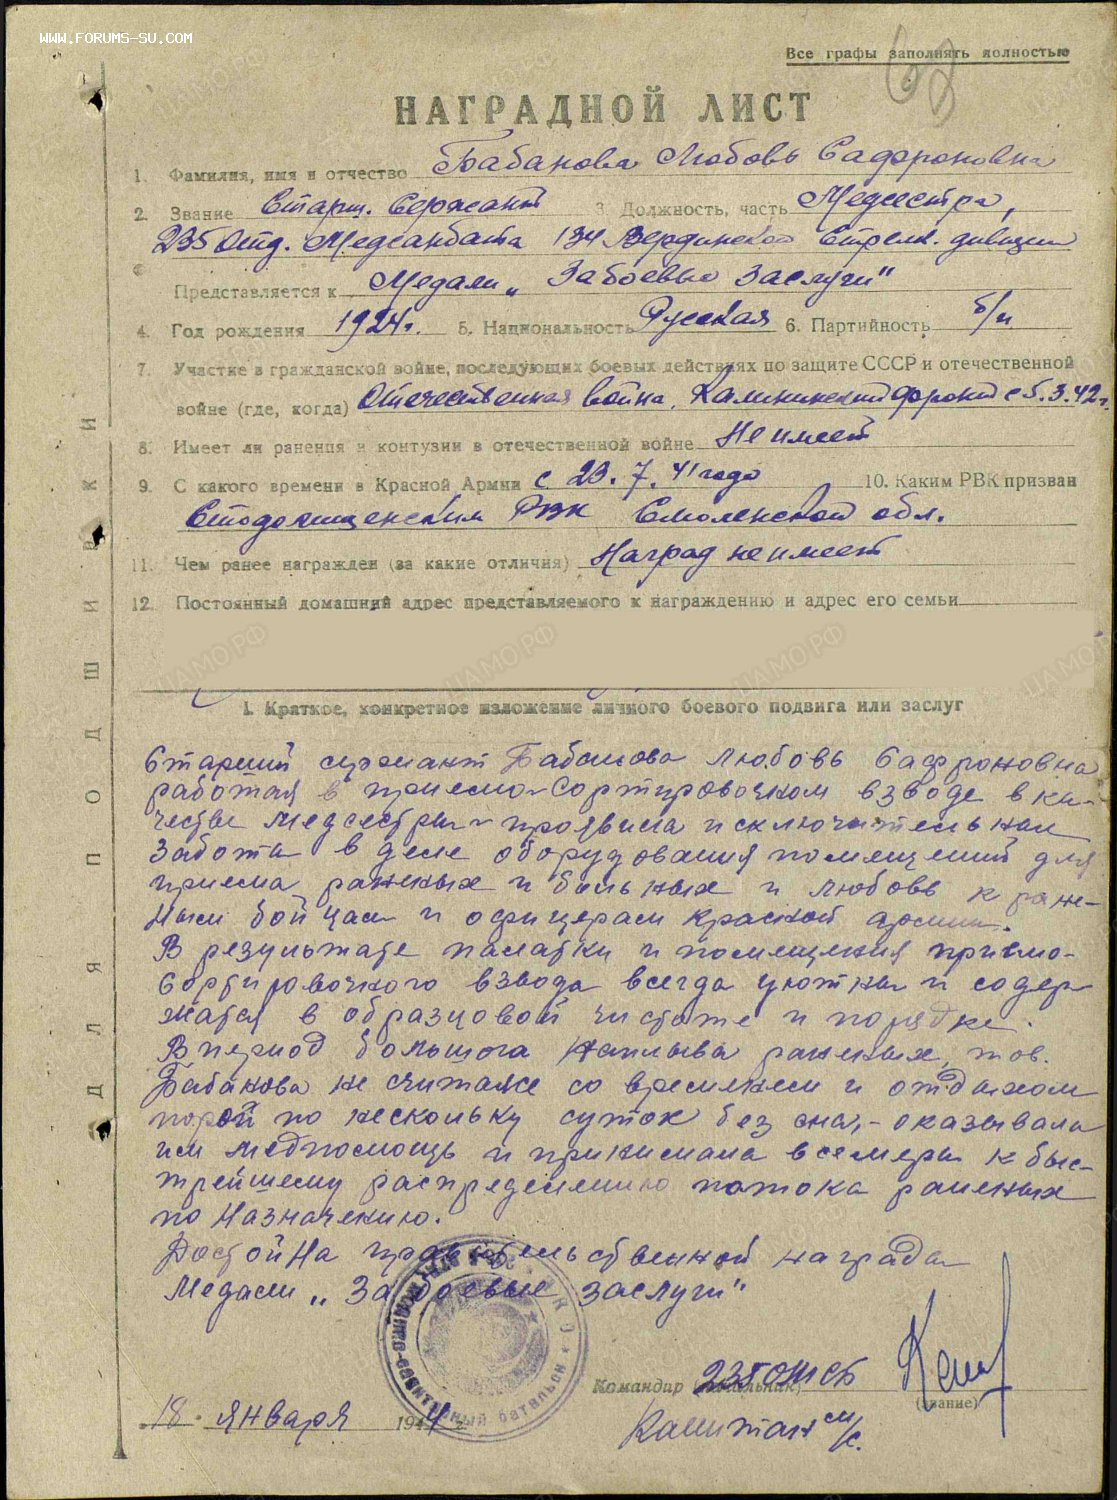 WWW.FORUMS-SU.COM
Все графы заполнять полностью
НАГРАДНОЙ ЛИСТ
1. Фамилия, имя и отчество Бабанова Любовь Сафроновна
2. Звание Старш. Сержант 3. Должность, часть Медсестра,
235 Отд. Медсанбата 134 Вердинской Стрелк. дивизии
Представляется к Медали „За боевые Заслуги"
4. Год рождения 1924г. 5. Национальность Русская 6. Партийность б/п
7. Участие в гражданской войне, последующих боевых действиях по защите СССР и отечественной
войне (где, когда) Отечественная война, Калининский фронт с 5.3.42г.
8. Имеет ли ранения и контузии в отечественной войне Не имеет
9. С какого времени в Красной Армии с 23.7.41 года 10. Каким РВК призван
Стодолищенским РВК Смоленской обл.
11. Чем ранее награжден (за какие отличия) Наград не имеет
12. Постоянный домашний адрес представляемого к награждению и адрес его семьи
1. Краткое, конкретное изложение личного боевого подвига или заслуг
Старший сержант Бабанова Любовь Сафроновна
работая в приемо-Сортировочном взводе в ка-
честве медсестры - проявила исключительная
забота в деле оборудования помещений для
приема раненых и больных и любовь к ране-
ным бойцам и офицерам красной армии.
В результате палатки и помещения приемо-
Сортировочного взвода всегда уютны и содер-
жатся в образцовой чистоте и порядке.
В период большога наплыва раненых, тов.
Бабанова не считаясь со временем и отдыхом
порой по нескольку суток без сна, - оказывала
им медпомощь и принимала все меры к быс-
трейшему распределению потока раненых
по Назначению.
Достойна правительственной награда
Медали „За боевые заслуги"
Командир (начальник) 235 ОМСБ
(звание)
Капитан м/с.
18 января 1944 г.
медико-санитарный батальон
ДЛЯ ПОДШИВКИ